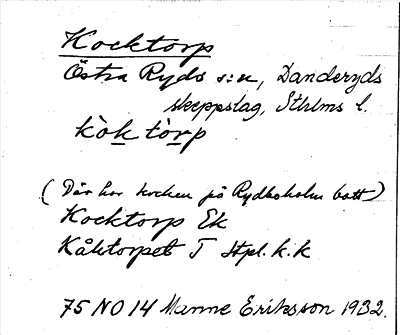 Kocktorp
Östra Ryds s:n, Danderyds
skeppslag, Sthlms l.
kòktòrp
(Där har kocken på Rydboholm bott)
Kocktorp Ek
Kåktorpet T Htpl. k. k
75 NO 14 Manne Eriksson 1932.